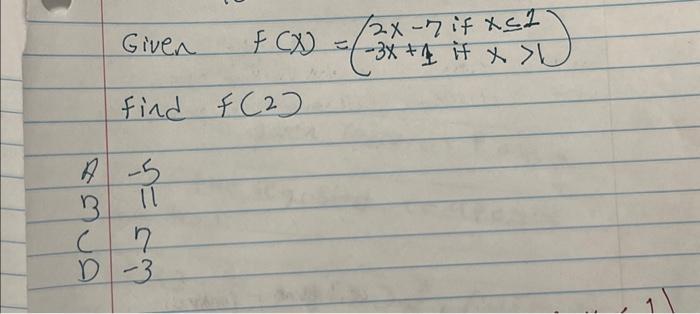 Given f(x) = (2x - 7 if x ≤ 1
-3x + 1 if x > 1)
Find f(2)
A -5
B 11
C 7
D -3